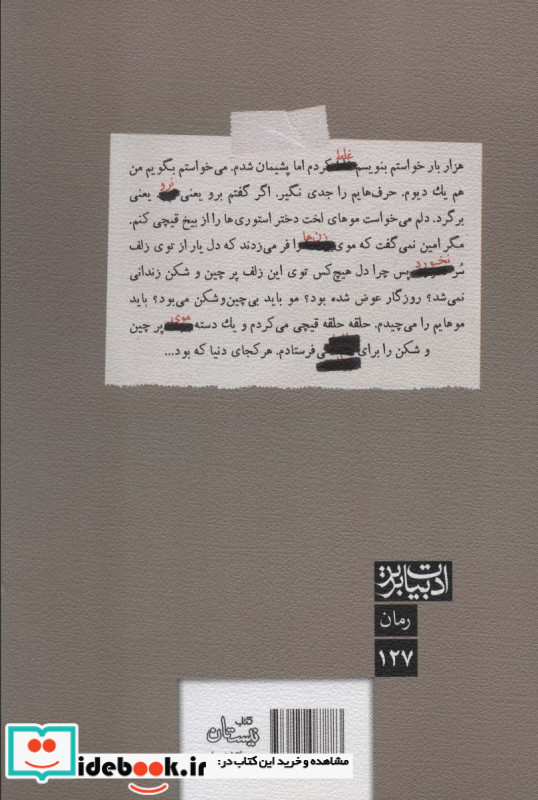 هزار بار خواستم بنویسم غلط کردم اما پشیمان شدم. می‌خواستم بگویم من
هم یك دیوم. حرف‌هایم را جدی نگیر. اگر گفتم برو یعنی نرو یعنی
برگرد. دلم می‌خواست موهای لخت دختر استوری‌ها را از بیخ قیچی کنم.
مگر امین نمی‌گفت که موی زن‌ها را فر می‌زدند که دل یار از توی زلف
سُر نخورد پس چرا دل هیچ‌کس توی این زلف پر چین و شکن زندانی
نمی‌شد؟ روزگار عوض شده بود؟ مو باید بی‌چین‌وشکن می‌بود؟ باید
موهایم را می‌چیدم. حلقه حلقه قیچی می‌کردم و یك دسته موی پر چین
و شکن را برای می فرستادم. هر کجای دنیا که بود...
ادبیات برتر
رمان
۱۲۷
کتاب
نیستان
مشاهده و خرید این کتاب در:
idebook.ir